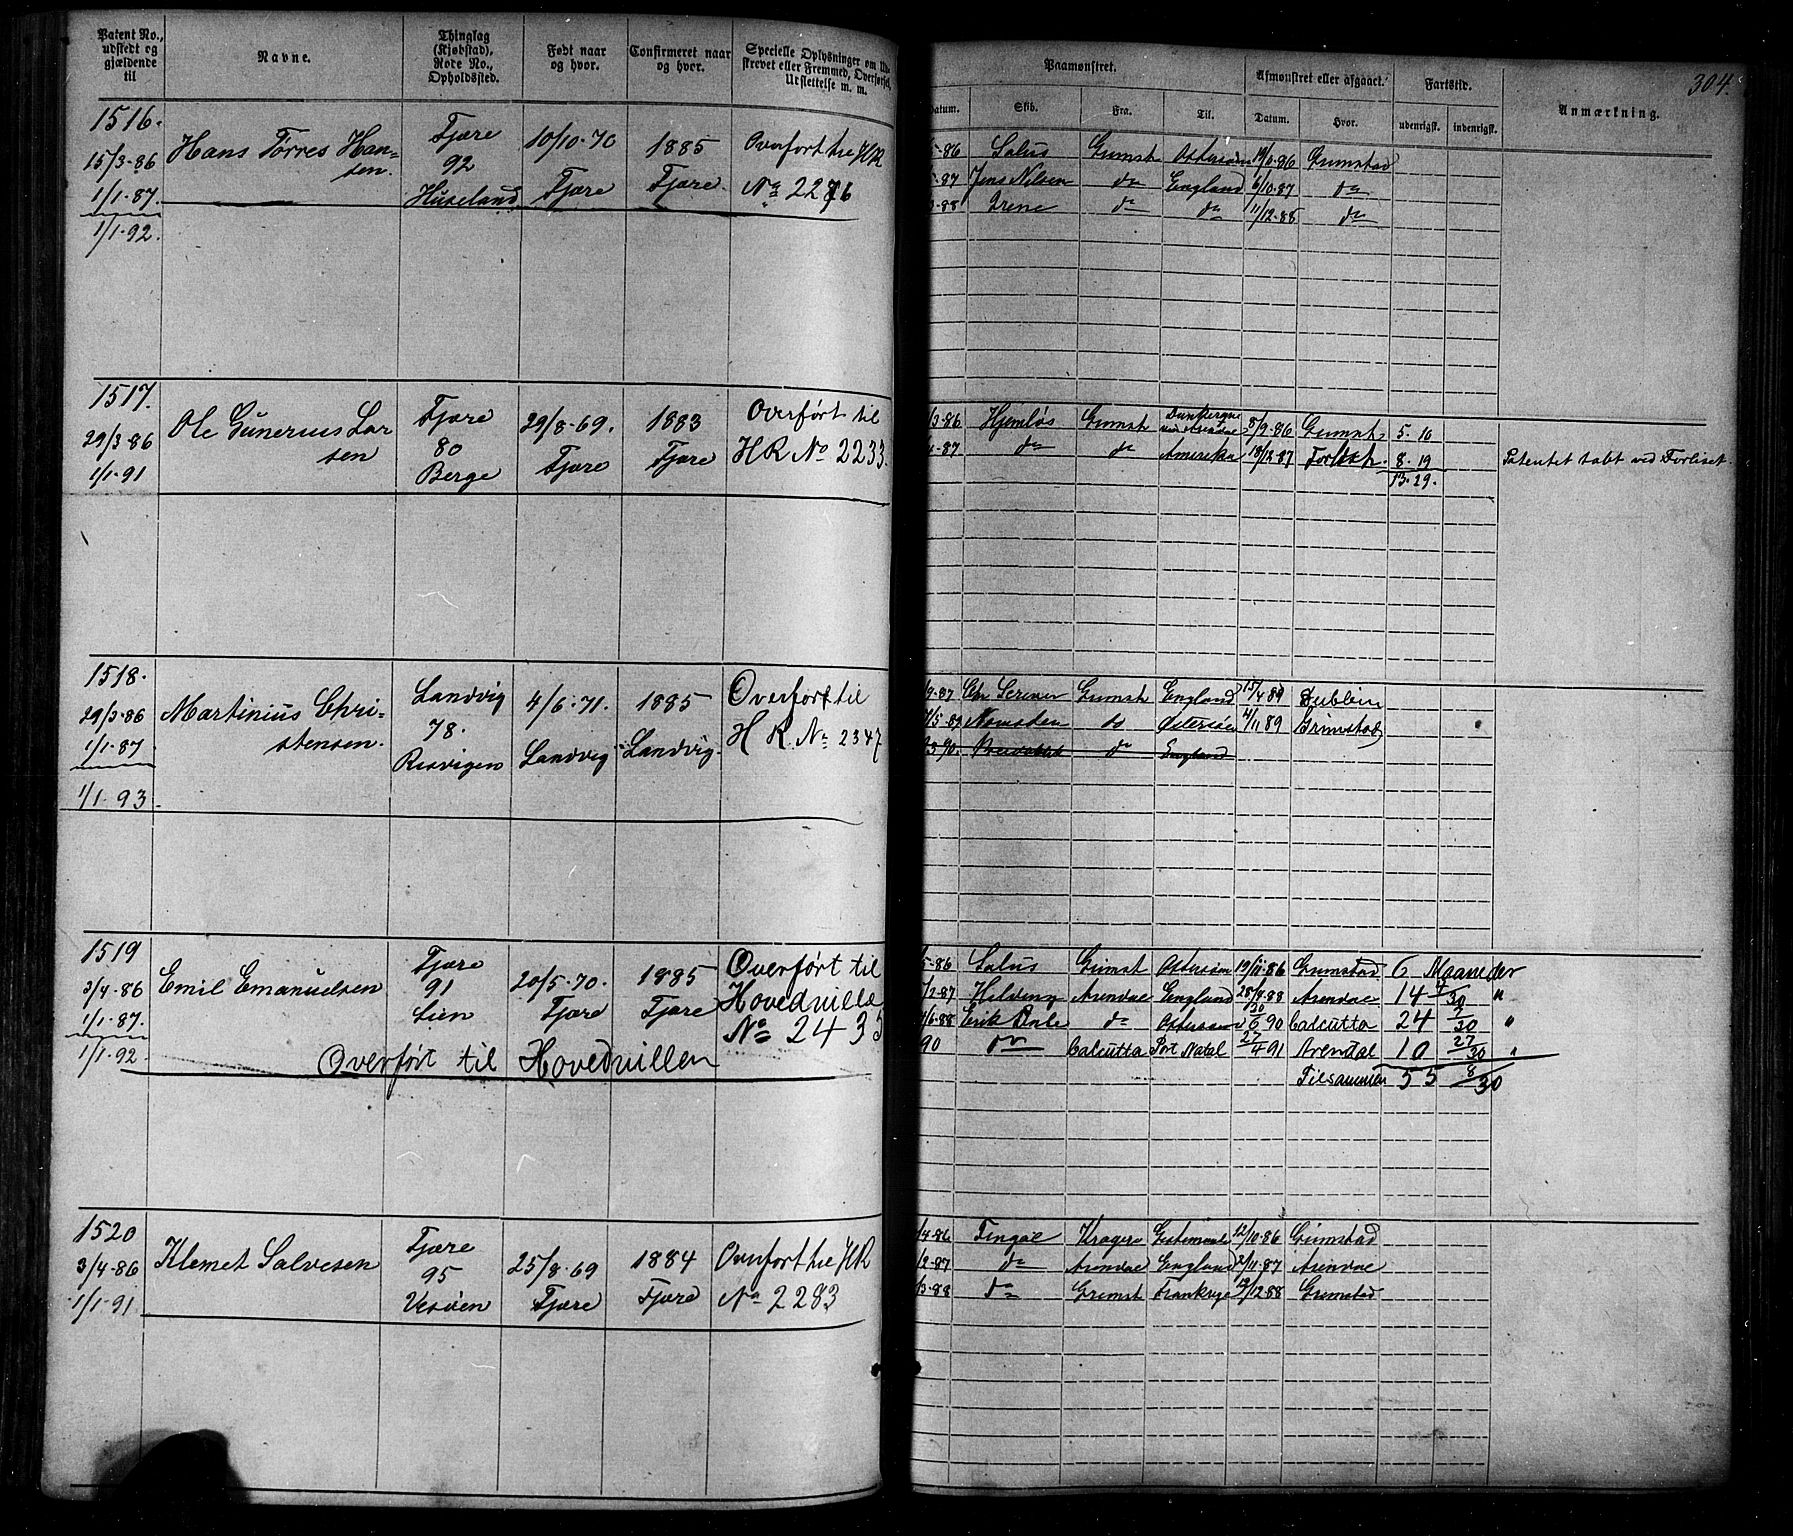 304.
Patent No., udstedt og gjældende til
Navne.
Thinglag (Kjøbstad), Rode No., Opholdssted.
Født naar og hvor.
Confirmeret naar og hvor.
Specielle Oplysninger om
strevet eller Fremmed, Overførsel,
Udslettelse m. m.
Paamønstret.
Afmønstret eller afgaaet.
Fartstid.
Anmærkning.
Datum. Skib. Fra. Til. Datum. Hvor. udenrigsk. indenrigsk.
1516.
15/3-86
1/1-87.
1/1-92.
Hans Torres Han-
sen.
Fjære
92
Huseland
10/10-70
Fjære
1885
Fjære.
Overført til HR
No 2276
5-86 Salus Grimst Østersøen 19/11-86 Grimstad
5-87 Jens Nilsen do England 6/10-87 do
3-88 Irene do do 11/12-88 do
1517.
29/3-86
1/1-91
Ole Gunerius Lar
sen
Fjære
80
Berge
29/8-69.
Fjære
1883
Fjære
Overført til
HR No 2233.
/3-86 Hjemløs Grimst Dunkerque 8/9-86 Grimst 5-10
4-87 do do Amerika 18/12-87 8-19 Patentet tabt ved Forliset.
13-29.
1518.
29/3-86
1/1-87
1/1-93.
Martinius Chri-
stensen.
Landvig
78.
Resvigen
4/6-71.
Landvig
1885
Landvig.
Overført til
HR. No 2347
/9-87 Chr Scriver Grimst England 15/4 89 Dublin
/5-89 do Østersøen 4/11 89 Grimstad
3 90. do England
1519
3/4-86
1/1-87.
1/1-92.
Emil Emanuelsen
Fjære
91
Lien
20/5-70.
Fjære
1885
Fjære
Overført til
Hovedrulle
No 2435
Overført til Hovedrullen
5-86 Salus Grimst Østersøen 19/11-86 Grimstad 6 Maaneder
/2-87 Arendal England 28/4-88 Arendal 14 4/30 "
/6-88 Erik do Østersøen 30/6 90 Calcutta 24 2/30 "
90 do Calcutta Port Natal 27/4 91 Arendal 10 27/30 "
Tilsammen 55 8/30
1520
3/4-86
1/1-91
Klemet Salvesen
Fjære
95
Vessøen
25/8-69
Fjære
1884
Fjære
Overført til HR
No 2283
/4-86 Fingal Kragerø 12/10-86 Grimstad
/2-87 do Arendal England 2/11-87 Arendal
/3-88 do Grimst Frankrige 19/12-88 Grimstad